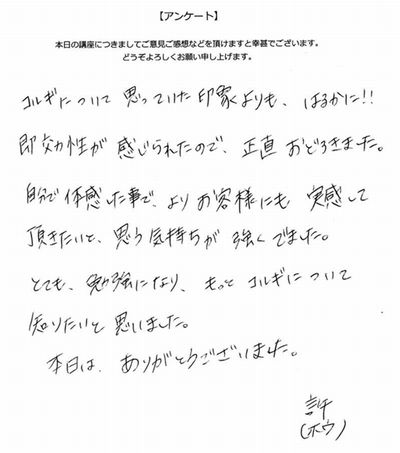 【アンケート】
本日の講座につきましてご意見ご感想などを頂けますと幸甚でございます。
どうぞよろしくお願い申し上げます。
コルギについて 思っていた印象よりも、はるかに!!
即効性が 感じられたので、正直 おどろきました。
自分で 体感した事で、より お客様にも、実感して
頂きたいと、思う気持ちが 強くでました。
とても、勉強になり、もっと コルギについて
知りたいと 思いました。
本日は、ありがとうございました。
許
(ホウ)